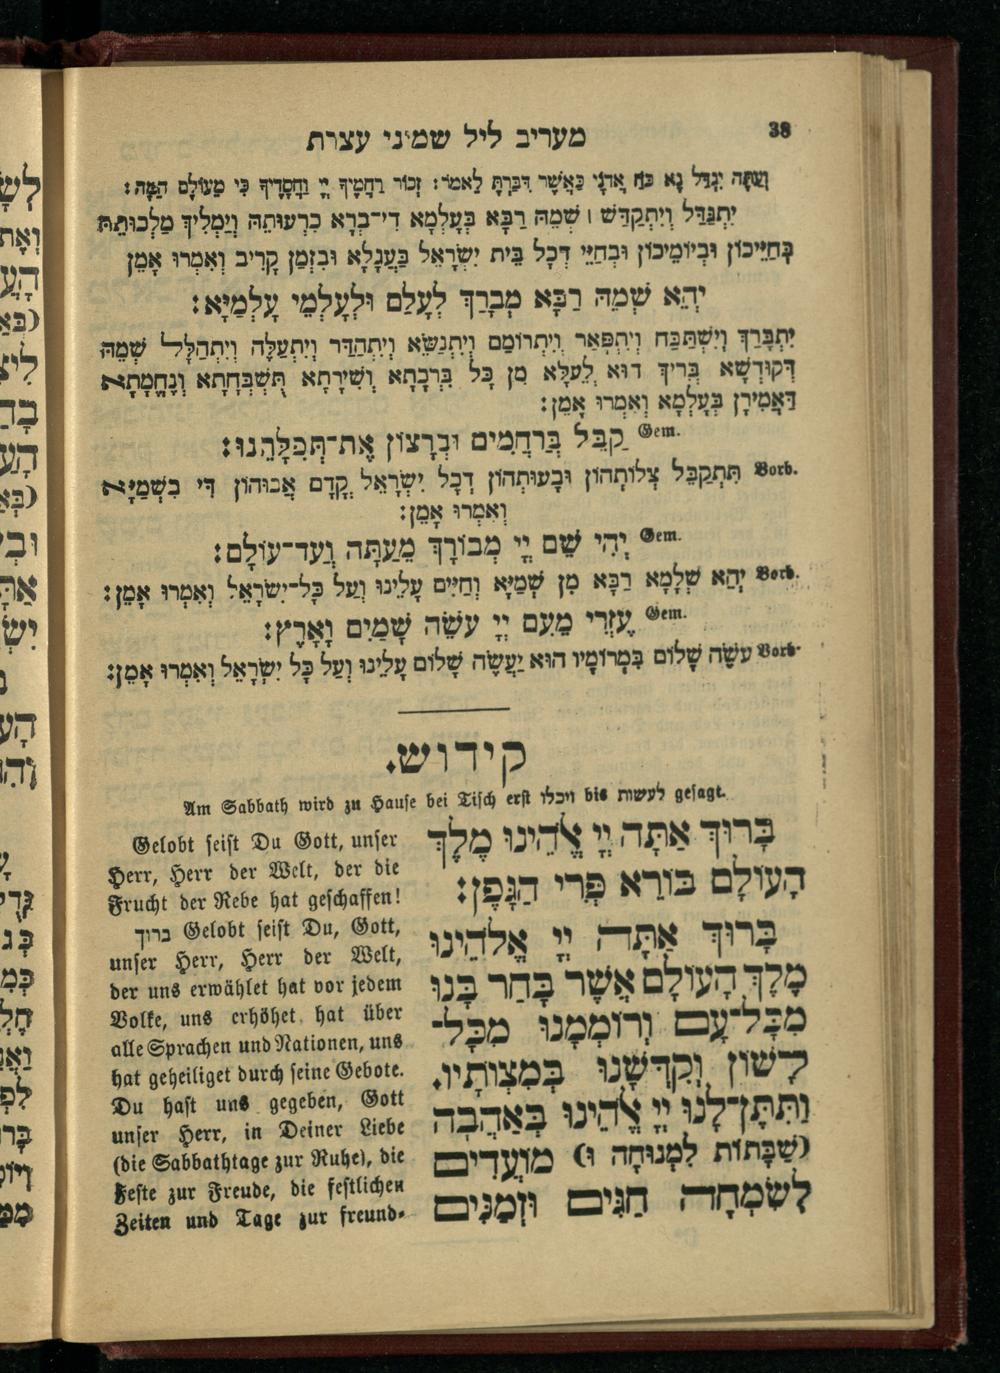 38
מעריב ליל שמיני עצרת
וְעַתָּה יִגְדַּל נָא כֹּחַ אֲדֹנָי כַּאֲשֶׁר דִּבַּרְתָּ לֵאמֹר׃ זְכוֹר רַחֲמֶיךָ יְיָ וַחֲסָדֶיךָ כִּי מֵעוֹלָם הֵמָּה׃
יִתְגַּדַּל וְיִתְקַדַּשׁ ׀ שְׁמֵהּ רַבָּא בְּעָלְמָא דִי־בְרָא כִרְעוּתֵהּ וְיַמְלִיךְ מַלְכוּתֵהּ
בְּחַיֵּיכוֹן וּבְיוֹמֵיכוֹן וּבְחַיֵּי דְכָל בֵּית יִשְׂרָאֵל בַּעֲגָלָא וּבִזְמַן קָרִיב וְאִמְרוּ אָמֵן
יְהֵא שְׁמֵהּ רַבָּא מְבָרַךְ לְעָלַם וּלְעָלְמֵי עָלְמַיָּא׃
יִתְבָּרַךְ וְיִשְׁתַּבַּח וְיִתְפָּאַר וְיִתְרוֹמַם וְיִתְנַשֵּׂא וְיִתְהַדַּר וְיִתְעַלֶּה וְיִתְהַלָּל שְׁמֵהּ
דְּקוּדְשָׁא בְּרִיךְ הוּא לְעֵלָּא מִן כָּל בִּרְכָתָא וְשִׁירָתָא תֻּשְׁבְּחָתָא וְנֶחֱמָתָא
דַּאֲמִירָן בְּעָלְמָא וְאִמְרוּ אָמֵן׃
Gem. קַבֵּל בְּרַחֲמִים וּבְרָצוֹן אֶת־תְּפִלָּתֵנוּ׃
Vorb. תִּתְקַבֵּל צְלוֹתְהוֹן וּבָעוּתְהוֹן דְכָל יִשְׂרָאֵל קֳדָם אֲבוּהוֹן דִּי בִשְׁמַיָּא
וְאִמְרוּ אָמֵן׃
Gem. יְהִי שֵׁם יְיָ מְבוֹרָךְ מֵעַתָּה וְעַד־עוֹלָם׃
Vorb. יְהֵא שְׁלָמָא רַבָּא מִן שְׁמַיָּא וְחַיִּים עָלֵינוּ וְעַל כָּל־יִשְׂרָאֵל וְאִמְרוּ אָמֵן׃
Gem. עֶזְרִי מֵעִם יְיָ עֹשֵׂה שָׁמַיִם וָאָרֶץ׃
Vorb. עֹשֶׂה שָׁלוֹם בִּמְרוֹמָיו הוּא יַעֲשֶׂה שָׁלוֹם עָלֵינוּ וְעַל כָּל יִשְׂרָאֵל וְאִמְרוּ אָמֵן׃
קידוש.
Am Sabbath wird zu Hause bei Tisch erst ויכלו bis לעשות gesagt.
בָּרוּךְ אַתָּה יְיָ אֱלֹהֵינוּ מֶלֶךְ
הָעוֹלָם בּוֹרֵא פְּרִי הַגָּפֶן׃
בָּרוּךְ אַתָּה יְיָ אֱלֹהֵינוּ
מֶלֶךְ הָעוֹלָם אֲשֶׁר בָּחַר בָּנוּ
מִכָּל־עָם וְרוֹמְמָנוּ מִכָּל־
לָשׁוֹן וְקִדְּשָׁנוּ בְּמִצְוֹתָיו.
וַתִּתֶּן־לָנוּ יְיָ אֱלֹהֵינוּ בְּאַהֲבָה
(שַׁבָּתוֹת לִמְנוּחָה וּ) מוֹעֲדִים
לְשִׂמְחָה חַגִּים וּזְמַנִּים
Gelobt seist Du Gott, unser
Herr, Herr der Welt, der die
Frucht der Rebe hat geschaffen!
ברוך Gelobt seist Du, Gott,
unser Herr, Herr der Welt,
der uns erwählet hat vor jedem
Volke, uns erhöhet hat über
alle Sprachen und Nationen, uns
hat geheiliget durch seine Gebote.
Du hast uns gegeben, Gott
unser Herr, in Deiner Liebe
(die Sabbathtage zur Ruhe), die
Feste zur Freude, die festlichen
Zeiten und Tage zur freund-